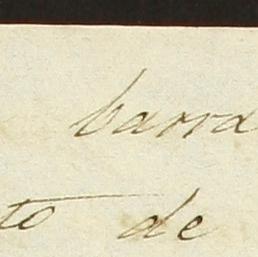 barra
to de